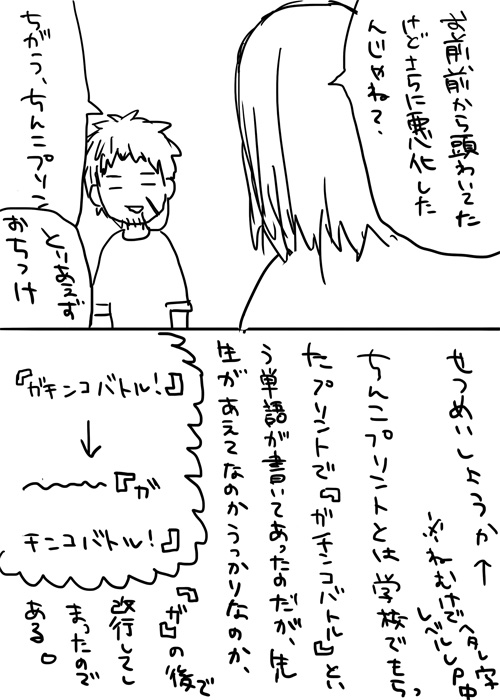 お前、前から頭わいてた
けどさらに悪化した
んじゃね？
ちがう、ちんこプリン
とりあえず
おちつけ
せつめいしようか→
※ねむけでヘタレ字
レベルUP中
ちんこプリントとは学校でもらっ
たプリントで『ガチンコバトル!』とい
う単語が書いてあったのだが、先
生があえてなのかうっかりなのか、
『ガ』の後で
改行してし
まったので
ある。
『ガチンコバトル!』
↓
〜〜〜『ガ
チンコバトル!』